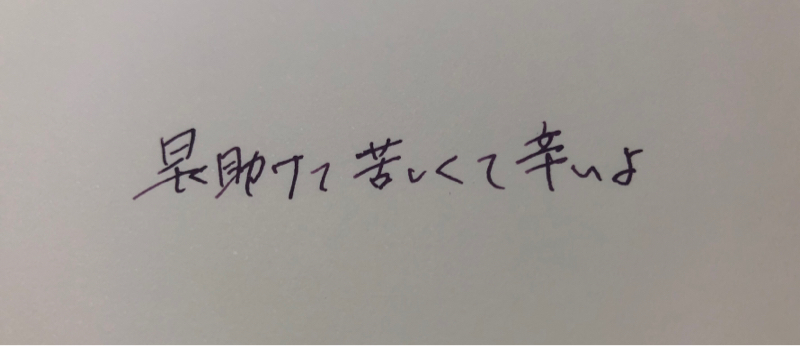 早く助けて苦しくて辛いよ